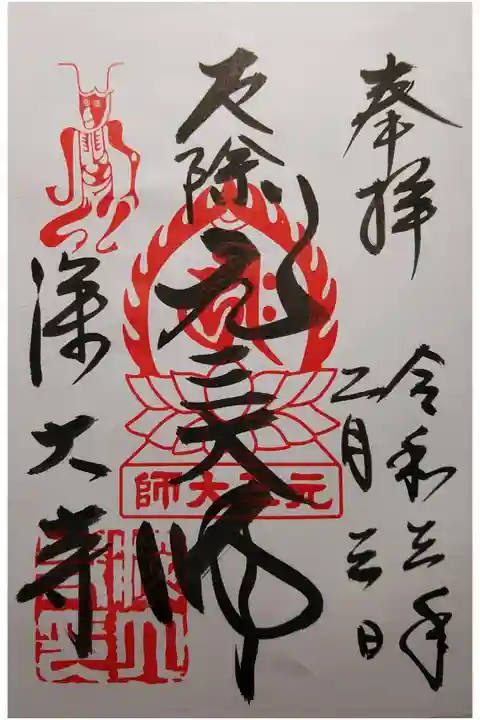 奉拝
令和三年
二月三日
厄除
元三大師
元三大師
深大寺